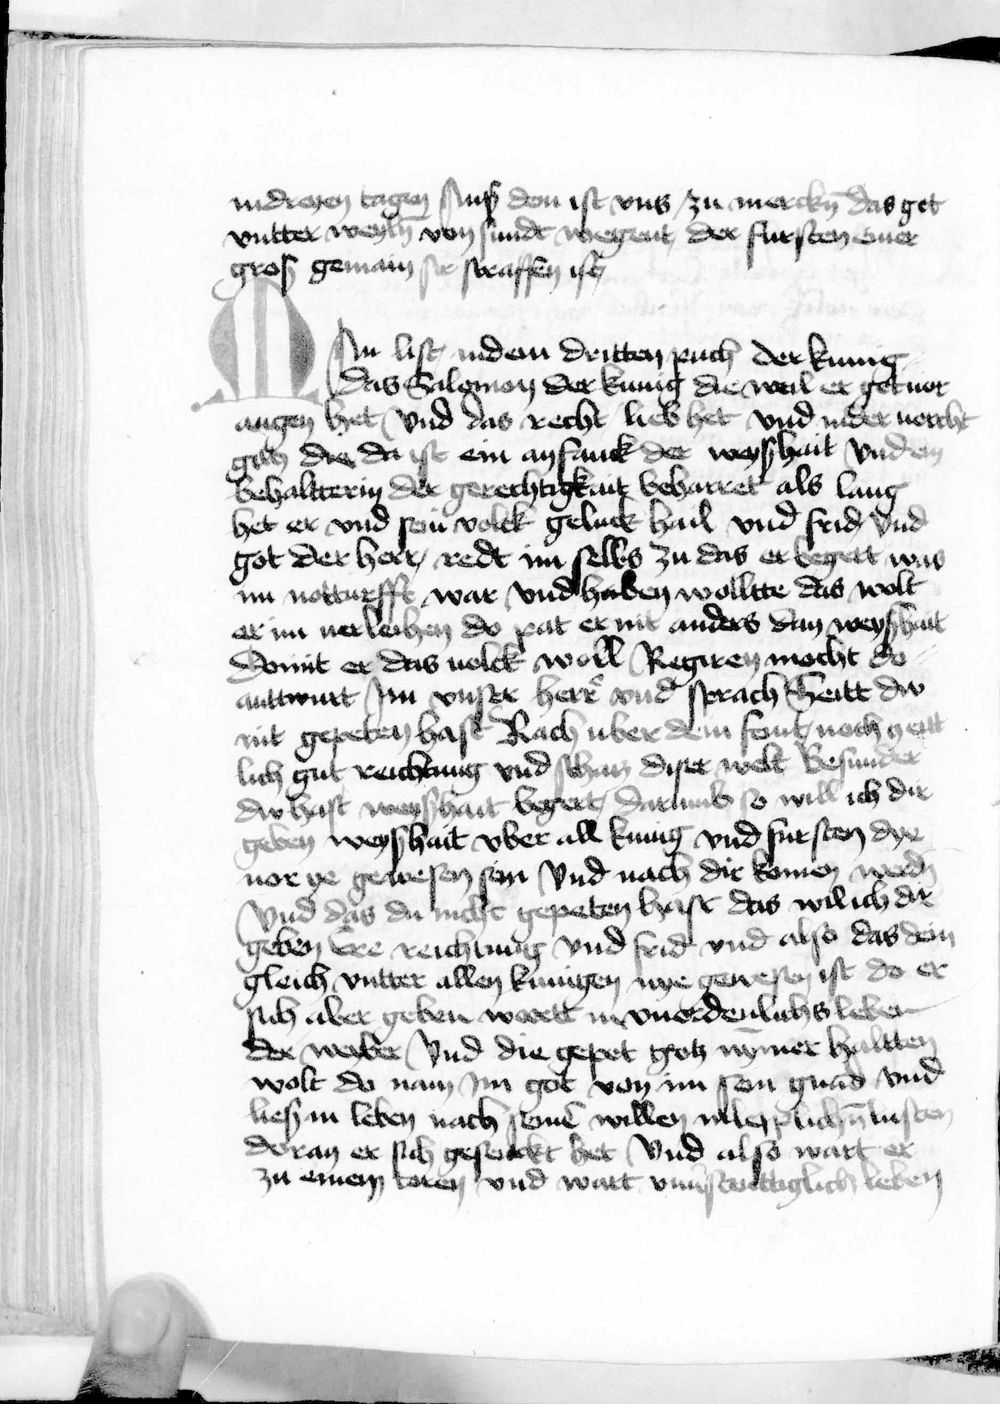 in dreyen tagen Auß dem ist vns zu merckn̄ das got
vntter weyln̄ von sundt wegent der fursten einer
groß gemain straffen ist
MAn list in dem dritten puch der kunig
das Salomon der kunig die weil er got vor
augen het Vnd das recht lieb het vnd in der vorcht
gotz die da ist ein anfanck der weyßhait Vnd ein
behaltterin der gerechtigkait beharret als lang
het er vnd sein volck geluck hail vnd frid Vnd
got der herr redt im selbs zu das er begert was
im notturfft war vnd haben wolltte das wolt
er im verleihen do pat er nit anders dan weyßhait
Domit er das volck woll Regiren mocht do
antwurt Im vnser herr vnd sprach Seitt dw
nit gepeten hast Rach uber dein feint noch zeitt
lich gut reichtung vnd schatz diser welt Besunder
dw hast weyßhait begert darumb so will ich dir
geben weyßhait vber all kunig vnd fursten dye
vor ye gewesen sein Vnd nach dir komen werdn
Vnd das du nicht gepeten hast das wil ich dir
geben Ere reichtung vnd frid vnd also das dein
gleich vntter allen kunigen nye gewesen ist do er
sich aber geben wortt in vnordenlichs leben
der weyber Vnd die gepot gotz nȳmer haltten
wolt do nam Im got von im sein gnad vnd
ließ in leben nach seinē willen in leyplichn̄ lusten
doran er sich gesenckt het Vnd also wart er
zu einem toren vnd wart vnuernufftiglich leben